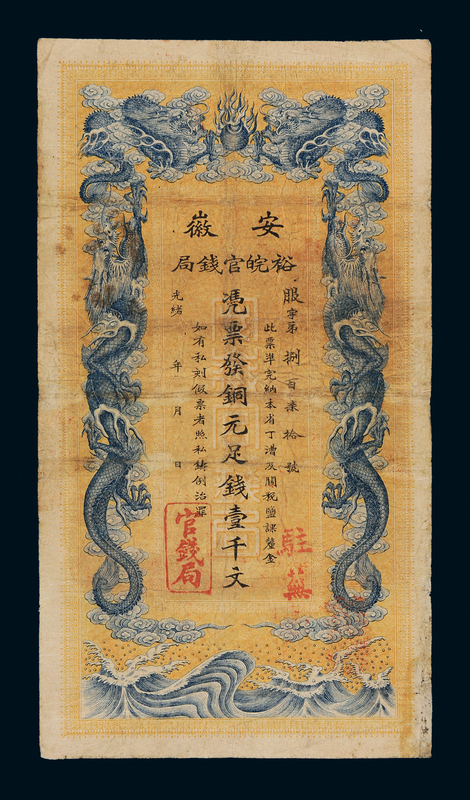 安徽
裕皖官錢局
服字第捌百柒拾號
此票準完納本省丁漕及關稅鹽課釐金
凴票發銅元足錢壹千文
如有私刻假票者照私鑄例治罪
光緒 年 月 日
駐蕪
官錢局